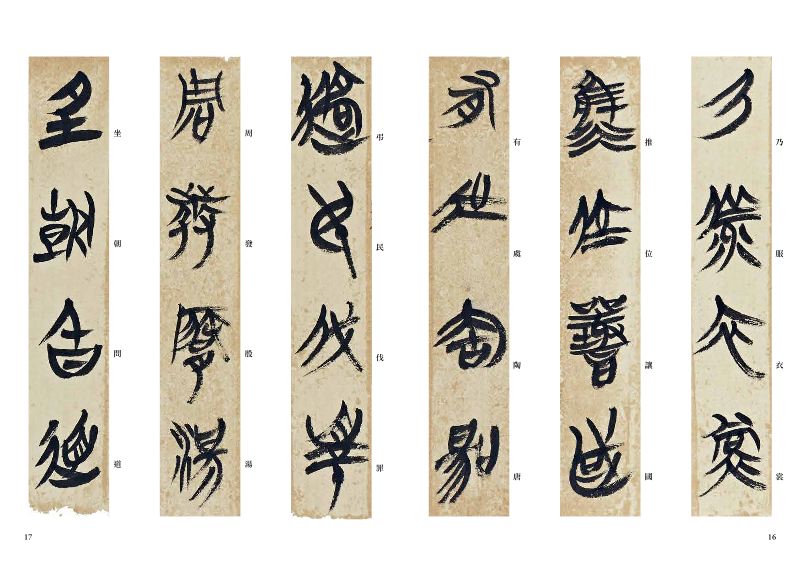 乃服衣裳
推位讓國
有處陶唐
弔民伐罪
周發殷湯
坐朝問道
16
17